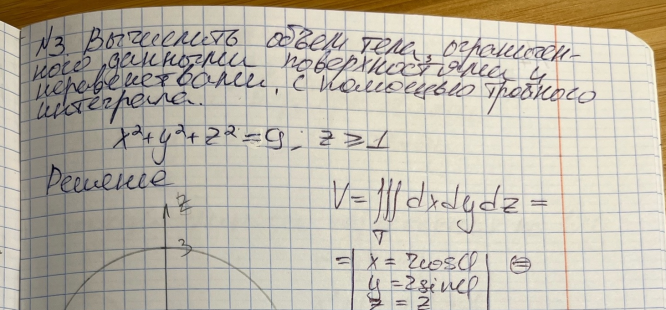 N3. Вычислить объем тела, ограничен-
ного данными поверхностями и
неравенствами, с помощью тройного
интеграла.
x²+y²+z²=9; z≥1
Решение
z
3
V=∭dxdydz=
T
=| x=rcosφ | ⊜
y=rsinφ
z=z